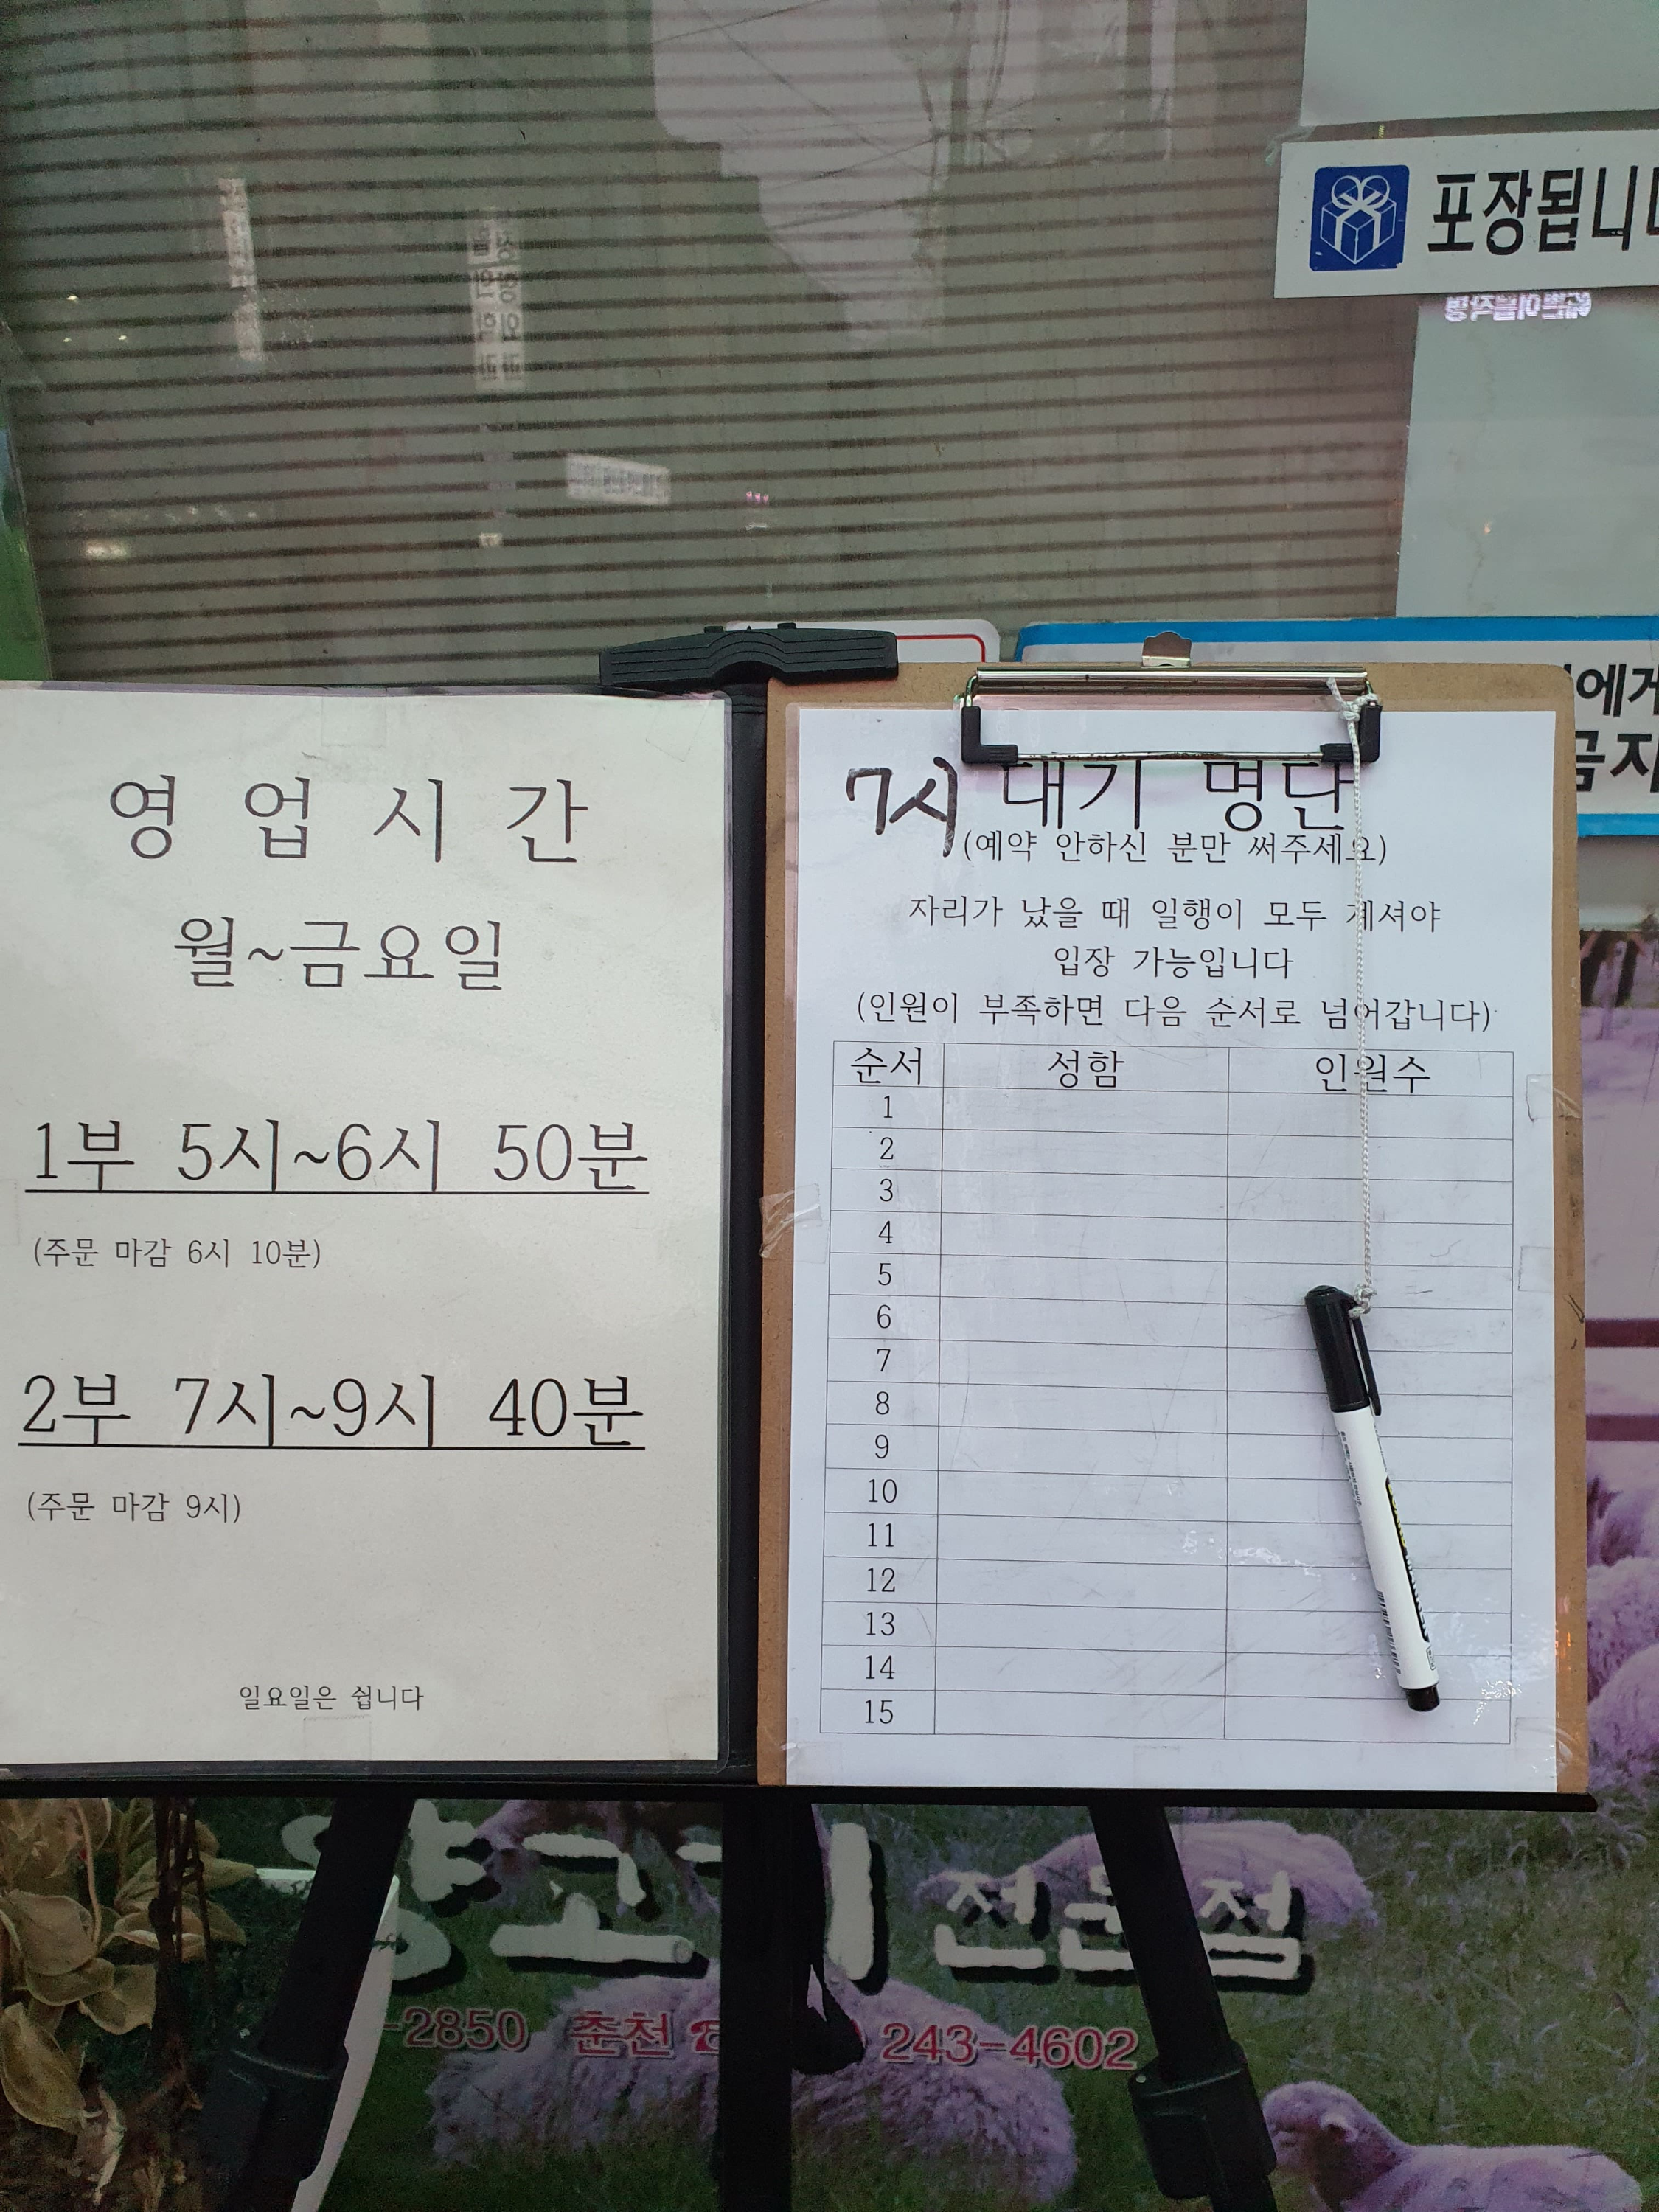 포장됩니
영 업 시 간
월~금요일
1부 5시~6시 50분
(주문 마감 6시 10분)
2부 7시~9시 40분
(주문 마감 9시)
일요일은 쉽니다
7시 대기 명단
(예약 안하신 분만 써주세요)
자리가 났을 때 일행이 모두 계셔야
입장 가능입니다
(인원이 부족하면 다음 순서로 넘어갑니다)
순서 성함 인원수
1
2
3
4
5
6
7
8
9
10
11
12
13
14
15
에게
금지
양고기 전문점
-2850 춘천 243-4602